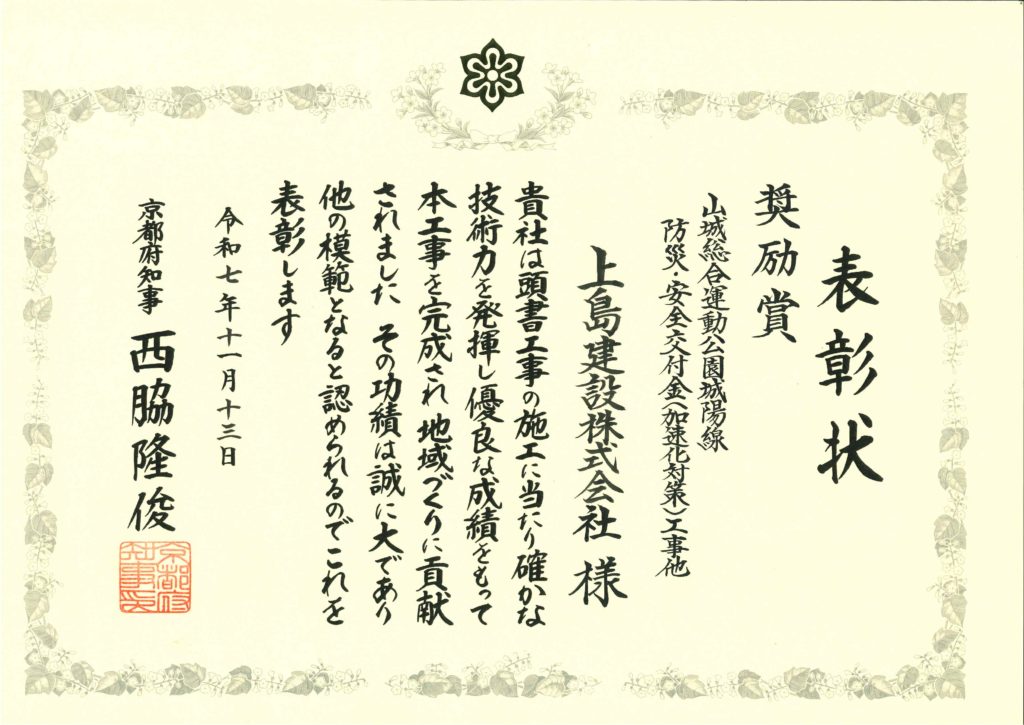 表彰状
奨励賞
山城総合運動公園城陽線
防災・安全交付金(加速化対策)工事他
上島建設株式会社 様
貴社は頭書工事の施工に当たり確かな
技術力を発揮し優良な成績をもって
本工事を完成され 地域づくりに貢献
されました その功績は誠に大であり
他の模範となると認められるのでこれを
表彰します
令和七年十一月十三日
京都府知事 西脇隆俊
京都府
知事之印